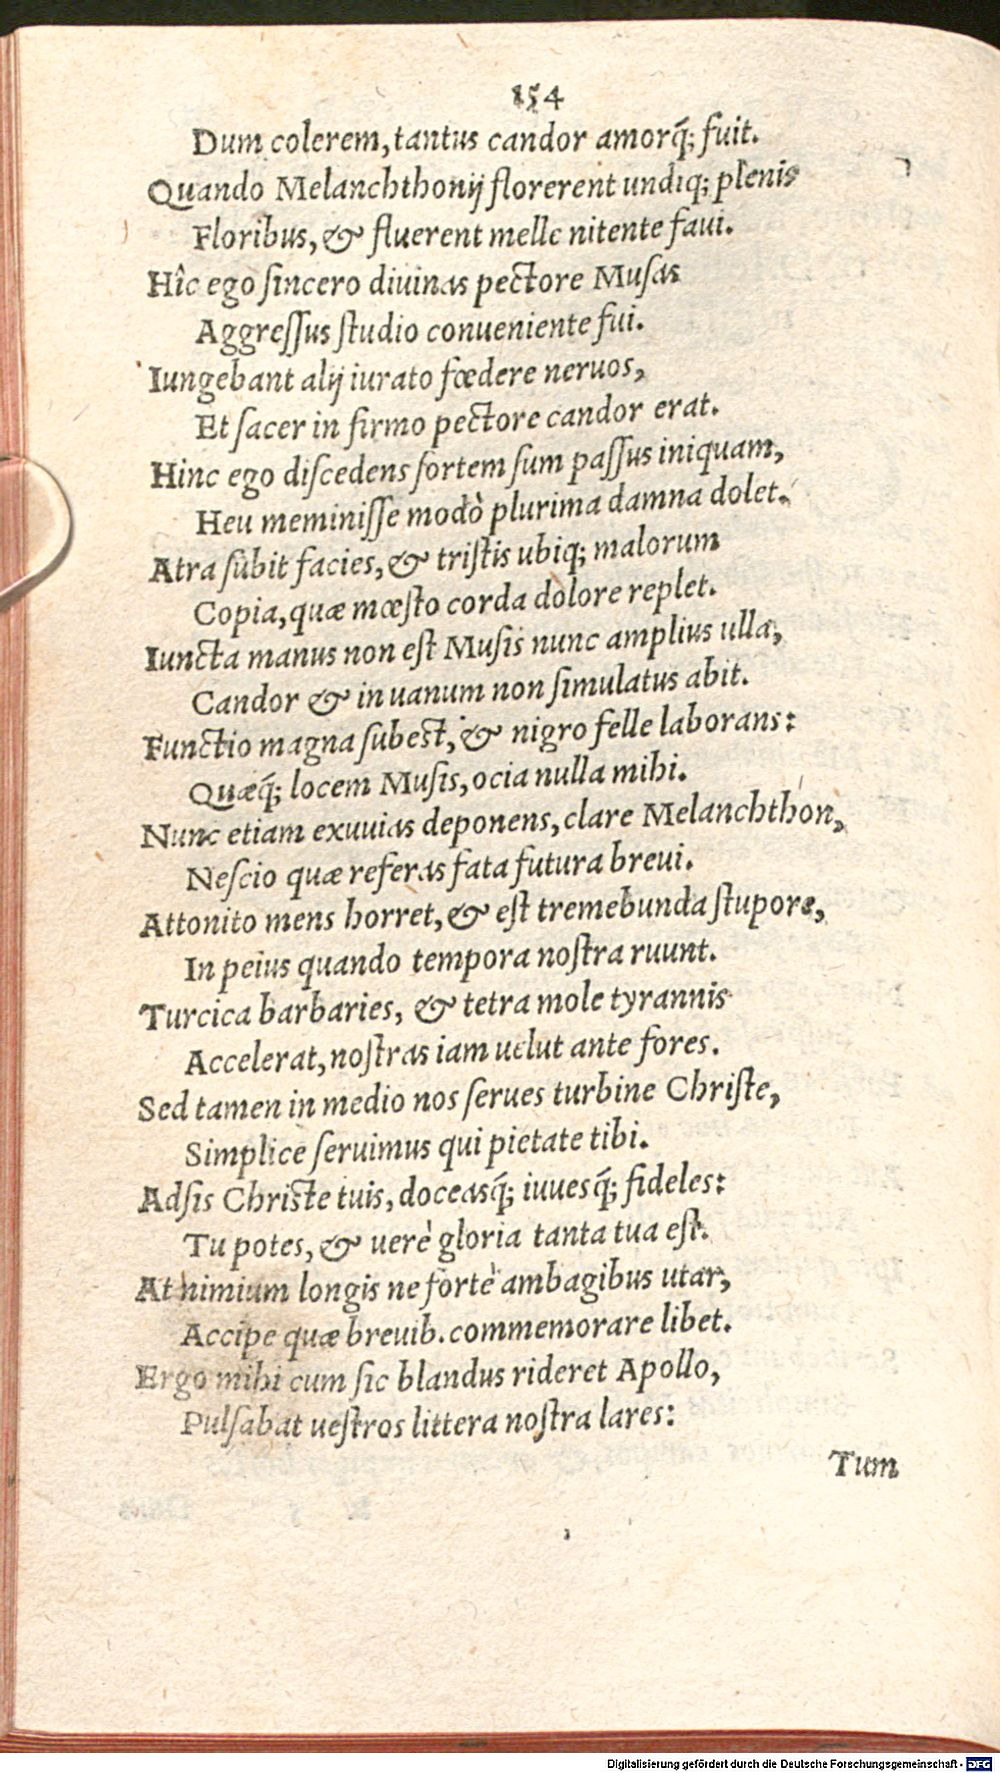 154
Dum colerem, tantus candor amorq́; fuit.
Quando Melanchthonij florerent undiq; plenis
Floribus, & fluerent melle nitente faui.
Hîc ego ſincero diuinas pectore Muſas
Aggreſſus ſtudio conueniente fui.
Iungebant alij iurato fœdere neruos,
Et ſacer in firmo pectore candor erat.
Hinc ego diſcedens ſortem ſum paſſus iniquam,
Heu meminiſſe modò plurima damna dolet.
Atra ſubit facies, & triſtis ubiq; malorum
Copia, quæ mœſto corda dolore replet.
Iuncta manus non eſt Muſis nunc amplius ulla,
Candor & in uanum non ſimulatus abit.
Functio magna ſubeſt, & nigro felle laborans:
Quæq́; locem Muſis, ocia nulla mihi.
Nunc etiam exuuias deponens, clare Melanchthon,
Neſcio quæ referas fata futura breui.
Attonito mens horret, & eſt tremebunda ſtupore,
In peius quando tempora noſtra ruunt.
Turcica barbaries, & tetra mole tyrannis
Accelerat, noſtras iam uelut ante fores.
Sed tamen in medio nos ſerues turbine Chriſte,
Simplice ſeruimus qui pietate tibi.
Adſis Chriſte tuis, doceasq́; iuuesq́; fideles:
Tu potes, & uerè gloria tanta tua eſt.
At nimium longis ne fortè ambagibus utar,
Accipe quæ breuib. commemorare libet.
Ergo mihi cum ſic blandus rideret Apollo,
Pulſabat ueſtros littera noſtra lares:
Tum
Digitalisierung gefördert durch die Deutsche Forschungsgemeinschaft - DFG